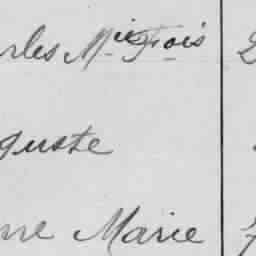 rles Mie Fois
guste
ne Marie